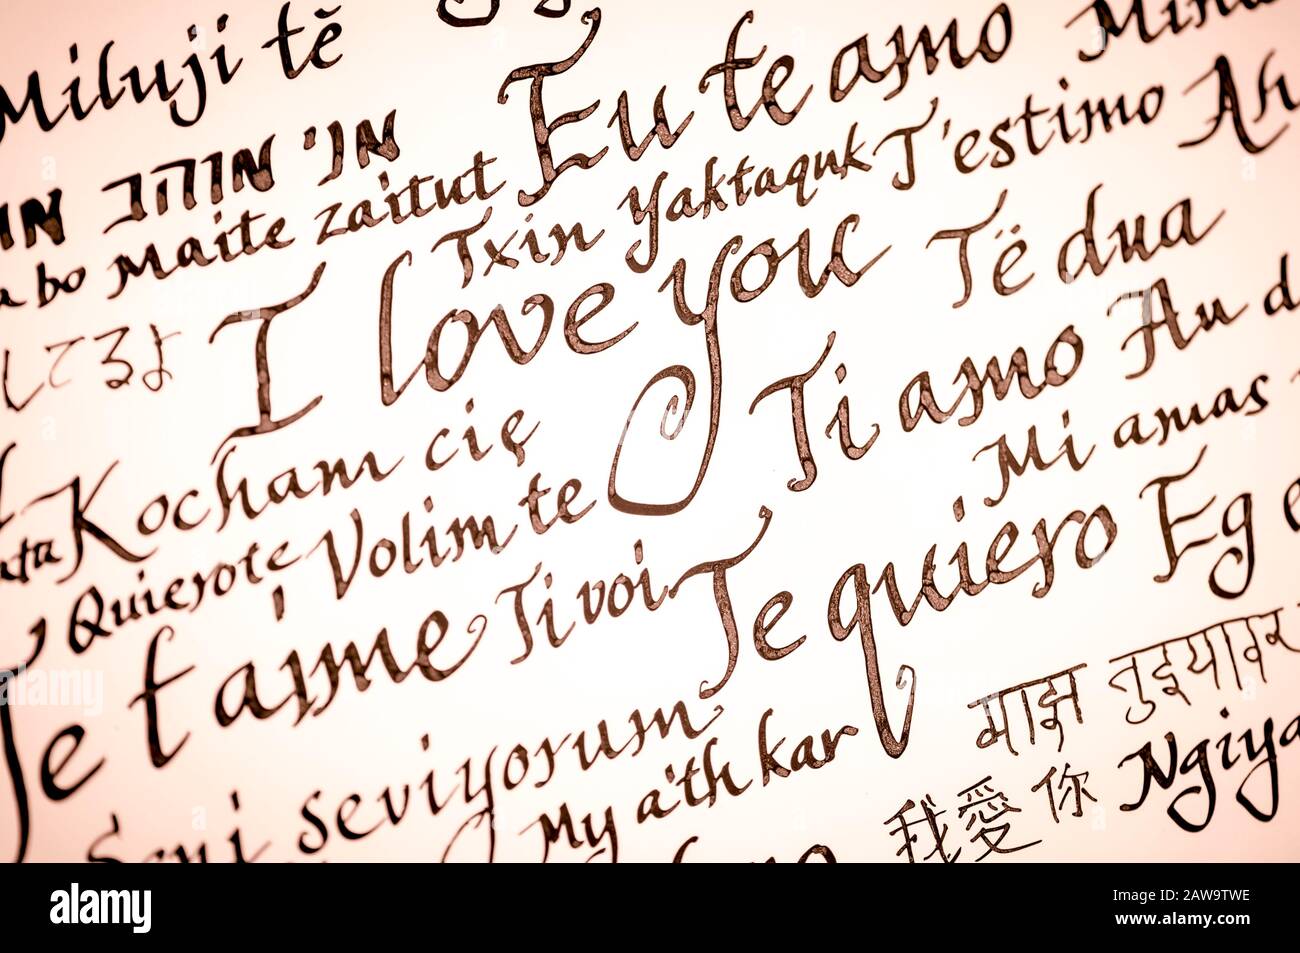 Miluji tě
Eu te amo
אני אוהב
Maite zaitut
Txin Yaktaquk
T'estimo
bo
I love you
Të dua
してるよ
Kocham cię
Ti amo
Mi amas
Quierote
Volim te
Te quiero
Je t'aime
Ti voi
Seni seviyorum
My a'th kar
माझ
我愛你
alamy
Image ID: 2AW9TWE
www.alamy.com